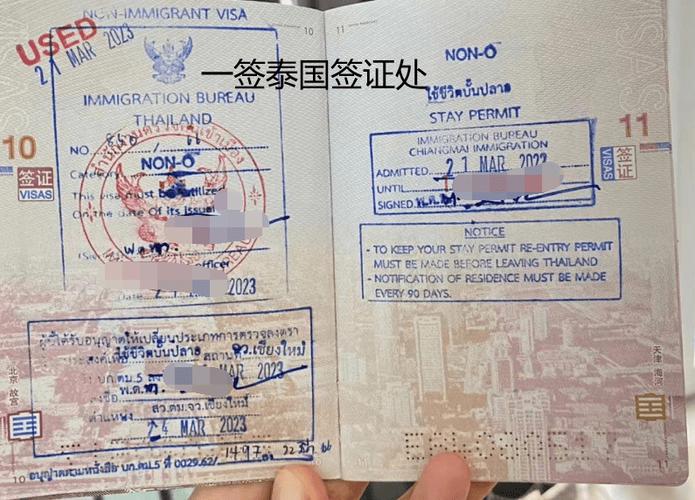 NON-IMMIGRANT VISA
10
USED
21 MAR 2023
IMMIGRATION BUREAU
THAILAND
NO.
NON-O
Category
This visa must be utilized
On the date Of its issue
officer
Date 2023
10
签证
VISAS
ผู้นี้ได้รับอนุญาตให้เปลี่ยนประเภทการตรวจลงตรา
ใช้ชีวิตบั้นปลาย สถานที่ จว.เชียงใหม่
MAR 2023
ตำแหน่ง สว.ตม.จว.เชียงใหม่
24 MAR 2023
อนุญาตตามหนังสือ บก.ตม.5 ที่ 0029.62/1497
北京 故宫
10
一签泰国签证处
11
NON-O
ใช้ชีวิตบั้นปลาย
STAY PERMIT
IMMIGRATION BUREAU
CHIANGMAI IMMIGRATION
ADMITTED 21 MAR 2023
UNTIL
SIGNED
NOTICE
- TO KEEP YOUR STAY PERMIT RE-ENTRY PERMIT
MUST BE MADE BEFORE LEAVING THAILAND
- NOTIFICATION OF RESIDENCE MUST BE MADE
EVERY 90 DAYS.
11
签证
VISAS
天津 海河
11